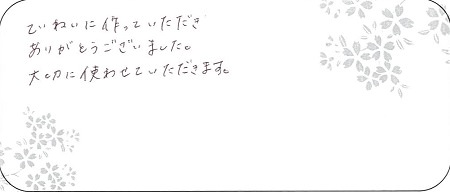 ていねいに作っていただき
ありがとうございました。
大切に使わせていただきます。